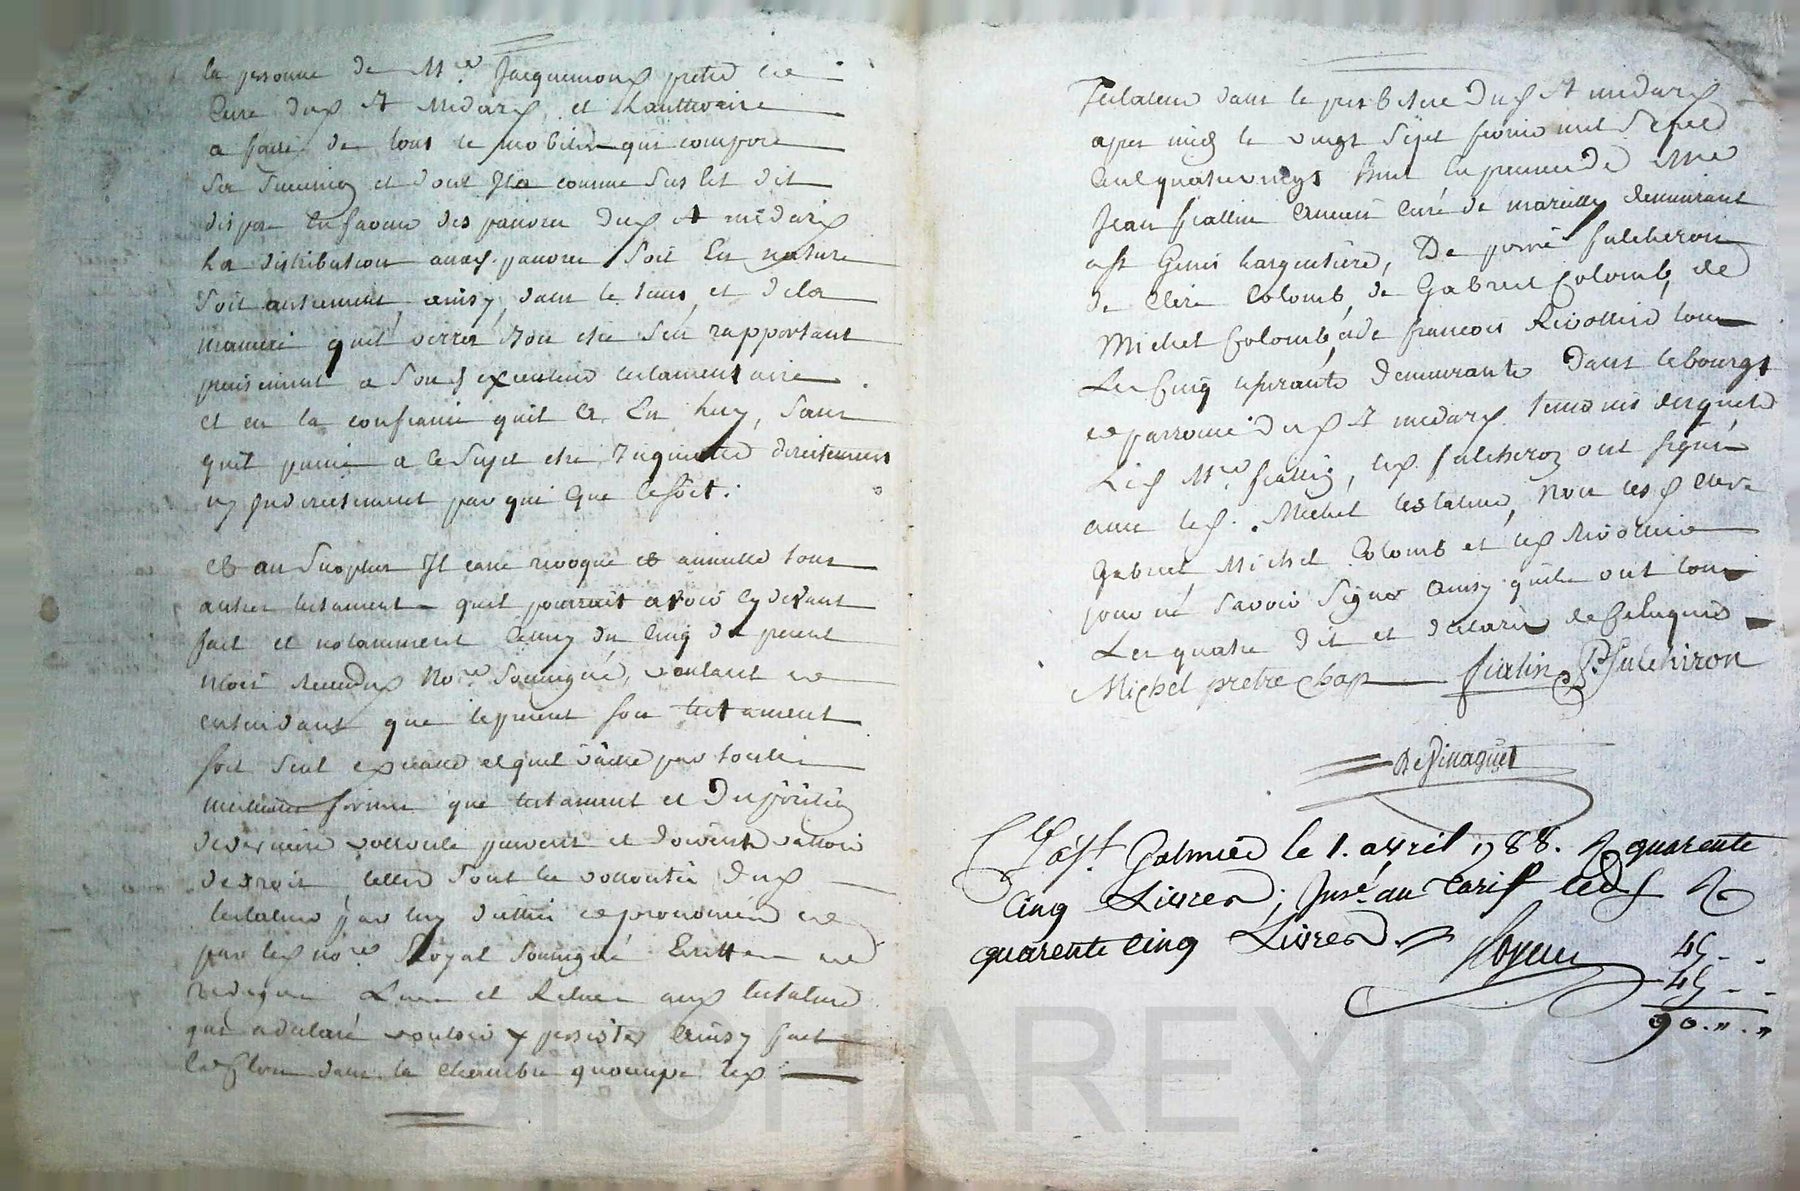 la personne de Mre Jacquemond pretre et
Curé dud St Medard, et
a faire de tout le mobilier qui compose
sa et dont Il a comme sus Est dit
disposé En faveur des pauvres dud St médard
La distribution auxd. pauvres soit En nature
soit autrement, ainsy, dans le tems, et dela
maniere quil verra bon etre s'en rapportant
a sond executeur testamentaire
et en la confiance quil a En luy, sans
quil puisse a ce sujet etre Inquieté directement
ny Indirectement par qui que ce soit.
Et au surplus Il casse revoque et annulle tous
autres testaments quil pourroit avoir cy devant
fait et notamment Celuy du Cinq du present
mois receud Nore soussigné, voulant et
entendant que le present son testament
soit seul executé et quil vaille par toutte
meilleure forme que testament et Disposition
de derniere vollonté peuvent et doivent valloir
de droit, telles sont les vollontés dud
testateur par luy dittes et prononcées et
par led nore Royal soussigné Ecrittes et
redigées Lues et Relues aud testateur
qui a declaré vouloir y persister Ainsy fait
et Clos dans la chambre quoccupe led
Testateur dans le presbitere Dud St medard
apres midy le vingt sept fevrier mil Sept
Cent quatrevingt huit En presence de Mre
Jean fiallin ancien Curé de mareilly demeurant
a St Genis Largentiere, De pierre fulcheron
de Clere Colomb, de Gabriel Colomb, de
Michel Colomb, et de francois Rivollier tous
Les Cinq demeurants Dans le bourgt
et parroisse Dud St medard temoins desquels
Led Mre fiallin, led fulcheron ont signé
avec led. Michel testateur, Non lesd Clere
Gabriel Michel Colomb et led Rivollier
pour ne savoir signer Ainsy quils ont tous
Les quatre dit et declaré de Ce Enquis
Michel pretre chap fialin P. fulchiron
De Vinaguet
Clé a St Galmier le 1. avril 1788. R quarente
Cinq Livres; Insé. au tarif led R
quarente cinq Livres
45 - -
45 - -
90 . " . "
CHAREYRON